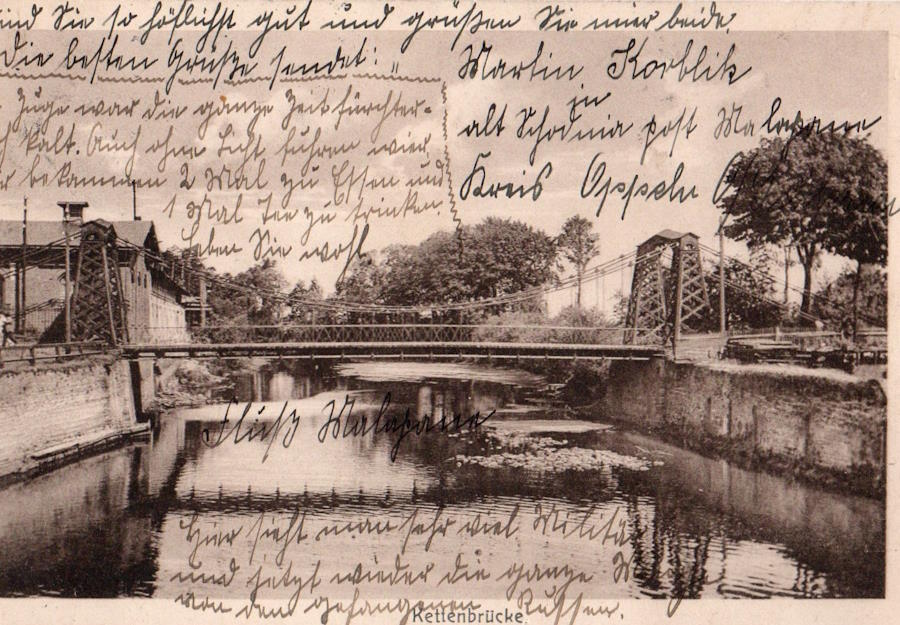 ind Sie so höflichst gut und grüßen Sie mier beide.
Die besten Grüße sendet: „
Martin Korblik
in
alt Schodnia post Malapane
Kreis Oppeln
Zuge war die ganze Zeit fürchter-
kalt. Auch ohne Licht fuhren wier
bekammen 2 Mal zu Essen und
1 Mal Tee zu trinken.
Leben Sie wohl
Fluß Malapane
Hier sieht man sehr viel Militä
und jetzt wieder die ganze
von den gefangenen Russen.
Kettenbrücke.